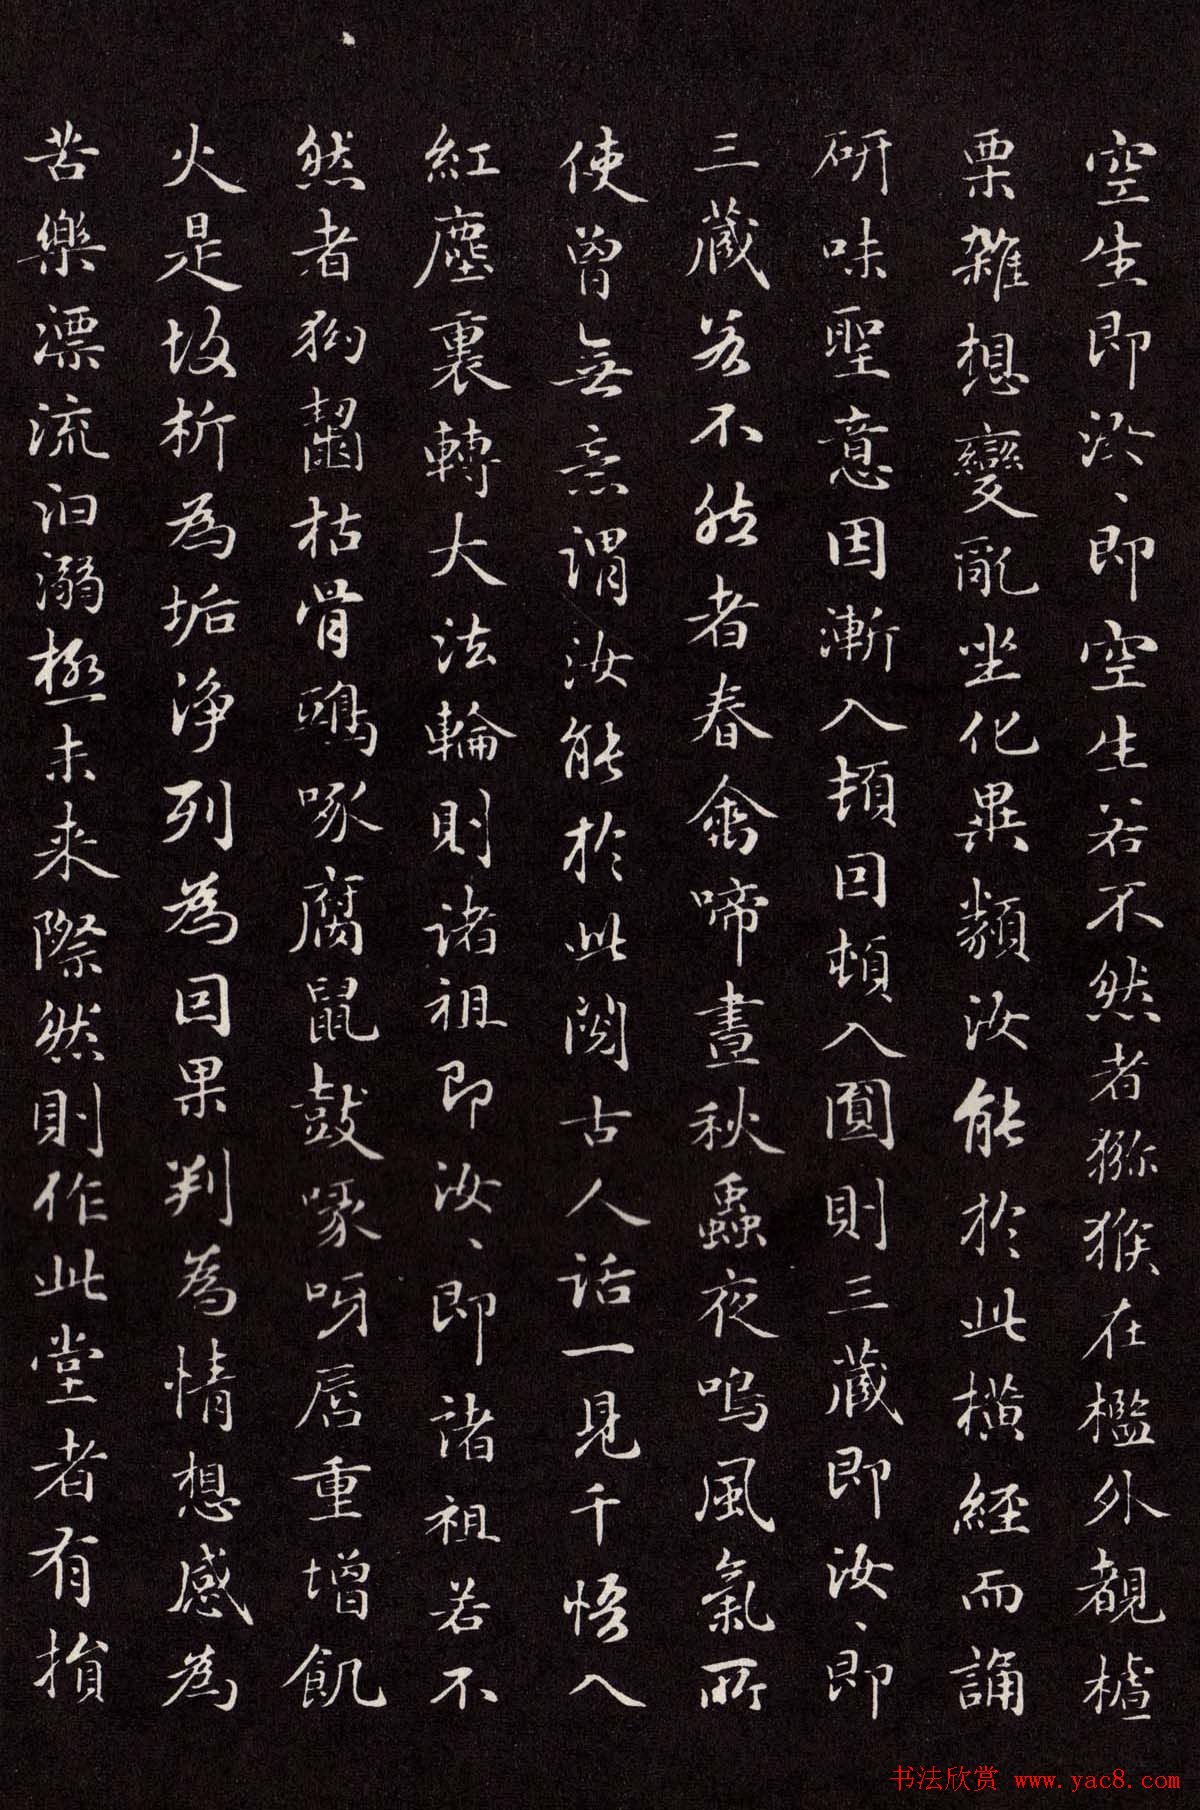 空生即汝、即空生若不然者獼猴在檻外覩樝
栗雜想變亂坐化異類汝能於此橫經而誦
研味聖意因漸入頓回頓入圓則三藏即汝、即
三藏若不然者春禽啼晝秋蟲夜鳴風氣所
使曾無意謂汝能於此閱古人話一見千悟入
紅塵裏轉大法輪則諸祖即汝、即諸祖若不
然者狗齧枯骨鴟啄腐鼠鼓喙呀唇重增飢
火是故析為垢淨列為因果判為情想感為
苦樂漂流汩溺極未來際然則作此堂者有損
书法欣赏 www.yac8.com